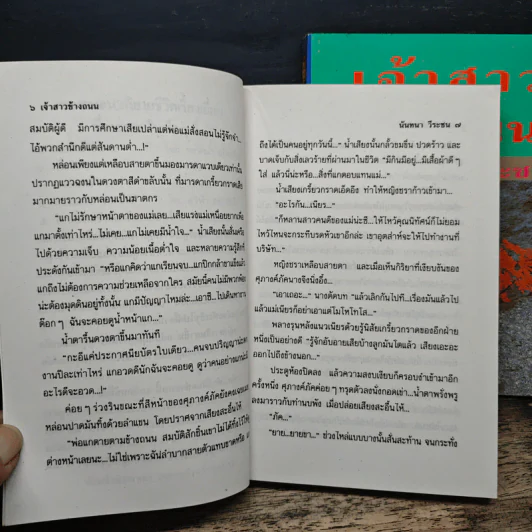 ๖ เจ้าสาวข้างถนน
สมบัติผู้ดี มีการศึกษาเสียเปล่าแต่พ่อแม่สั่งสอนไม่รู้จักจำ...
ไอ้พวกสำนึกดีแต่สันดานต่ำ...!
หล่อนเพียงแต่เหลือบสายตาขึ้นมองมารดาแวบเดียวเท่านั้น
ปรากฏแววฉงนในดวงตาสีดำขลับนั้น ที่มารดาเกรี้ยวกราดเสีย
มากมายราวกับหล่อนเป็นฆาตกร
"แกไม่รักษาหน้าตาของแม่เลย...เสียแรงแม่เหนื่อยยากเพื่อ
แกมาตั้งเท่าไหร่...ไม่เคย...แกไม่เคยมีน้ำใจ..." น้ำเสียงนั้นสั่นครือ
ไปด้วยความเจ็บ ความน้อยเนื้อต่ำใจ และหลายความรู้สึกที่
ประดังกันเข้ามา "หรือแกคิดว่าแกเรียนจบ...แกปีกกล้าขาแข็งแล้ว
แกถึงไม่ต้องการความช่วยเหลือจากใคร สมัยนี้คนไม่มีพวกพ้อง
น่ะต้องมุดดินอยู่ทั้งนั้น แกมีปัญญาไหมล่ะ...เอาซี...ไปเดินหางาน
ต๊อก ๆ ฉันจะคอยดูน้ำหน้าแก..."
น้ำตารื้นดวงตาขึ้นมาทันที
"กะอีแค่ประกาศนียบัตรใบเดียว...คนจบปริญญาน่ะตก
งานปีละเท่าไหร่ แกอวดดีนักฉันจะคอยดู ดูว่าคนอย่างแกน่ะมี
อะไรดีจะอวด...!"
ค่อย ๆ ร่วงรินขณะที่สีหน้าของศุภางค์ภัคยังคงเฉยเมย
หล่อนปาดมันทิ้งด้วยลำแขน โดยปราศจากเสียงสะอื้นไห้
"พ่อแกตายตามข้างถนน สมบัติสักชิ้นเขาไม่ได้ทิ้งไว้ให้ดู
ต่างหน้าเลยนะ...ไม่ใช่เพราะฉันลำบากสายตัวแทบขาดหรือ
นันทนา วีระชน ๗
ถึงได้เป็นคนอยู่ทุกวันนี้..." น้ำเสียงนั้นกลั้วขมขื่น ปวดร้าว และ
บาดเจ็บกับสิ่งเลวร้ายที่ผ่านมาในชีวิต "มีกินมีอยู่...มีเสื้อผ้าดี ๆ
ใส่ แล้วนี่น่ะหรือ...สิ่งที่แกตอบแทนแม่..."
น้ำเสียงเกรี้ยวกราดเอ็ดอึง ทำให้หญิงชราก้าวเข้ามา...
"อะไรกัน...เนียร..."
"ก็หลานสาวคนดีของแม่น่ะซี...ให้ไหว้คุณนิทัศน์ก็ไม่ยอม
ไหว้ไหนจะกระทืบรดหัวเขาอีกล่ะ เขาอุตส่าห์จะให้ไปทำงานที่
บริษัท..."
หญิงชราเหลือบสายตา และเมื่อเห็นกิริยาที่เงียบงันของ
ศุภางค์ภัคนางจึงนิ่งอึ้ง...
"เอาเถอะ..." นางตัดบท "แล้วเลิกกันไปที...เรื่องมันแล้วไป
แล้วแม่เนียรก็อย่าเอาแต่โมโหโทโส..."
พลางรุนหลังแนวเนียรด้วยรู้นิสัยเกรี้ยวกราดของอีกฝ่าย
หนึ่งเป็นอย่างดี "รู้จักอับอายเสียบ้างลูกมันโตแล้ว เสียงเอะอะ
ออกไปถึงข้างนอก..."
ประตูห้องปิดลง แล้วความสงบเงียบก็ครอบงำเข้ามาอีก
ครั้งหนึ่ง ศุภางค์ภัคค่อย ๆ ทรุดตัวลงนั่งกอดเข่า...น้ำตาพรั่งพรู
ลงมาราวกับทำนบพัง เมื่อปล่อยเสียงสะอื้นไห้...
"ภัค..."
"ยาย...ยายขา..." ช่วงไหล่แบบบางนั้นสั่นสะท้าน จนกระทั่ง
เจ้าสาว